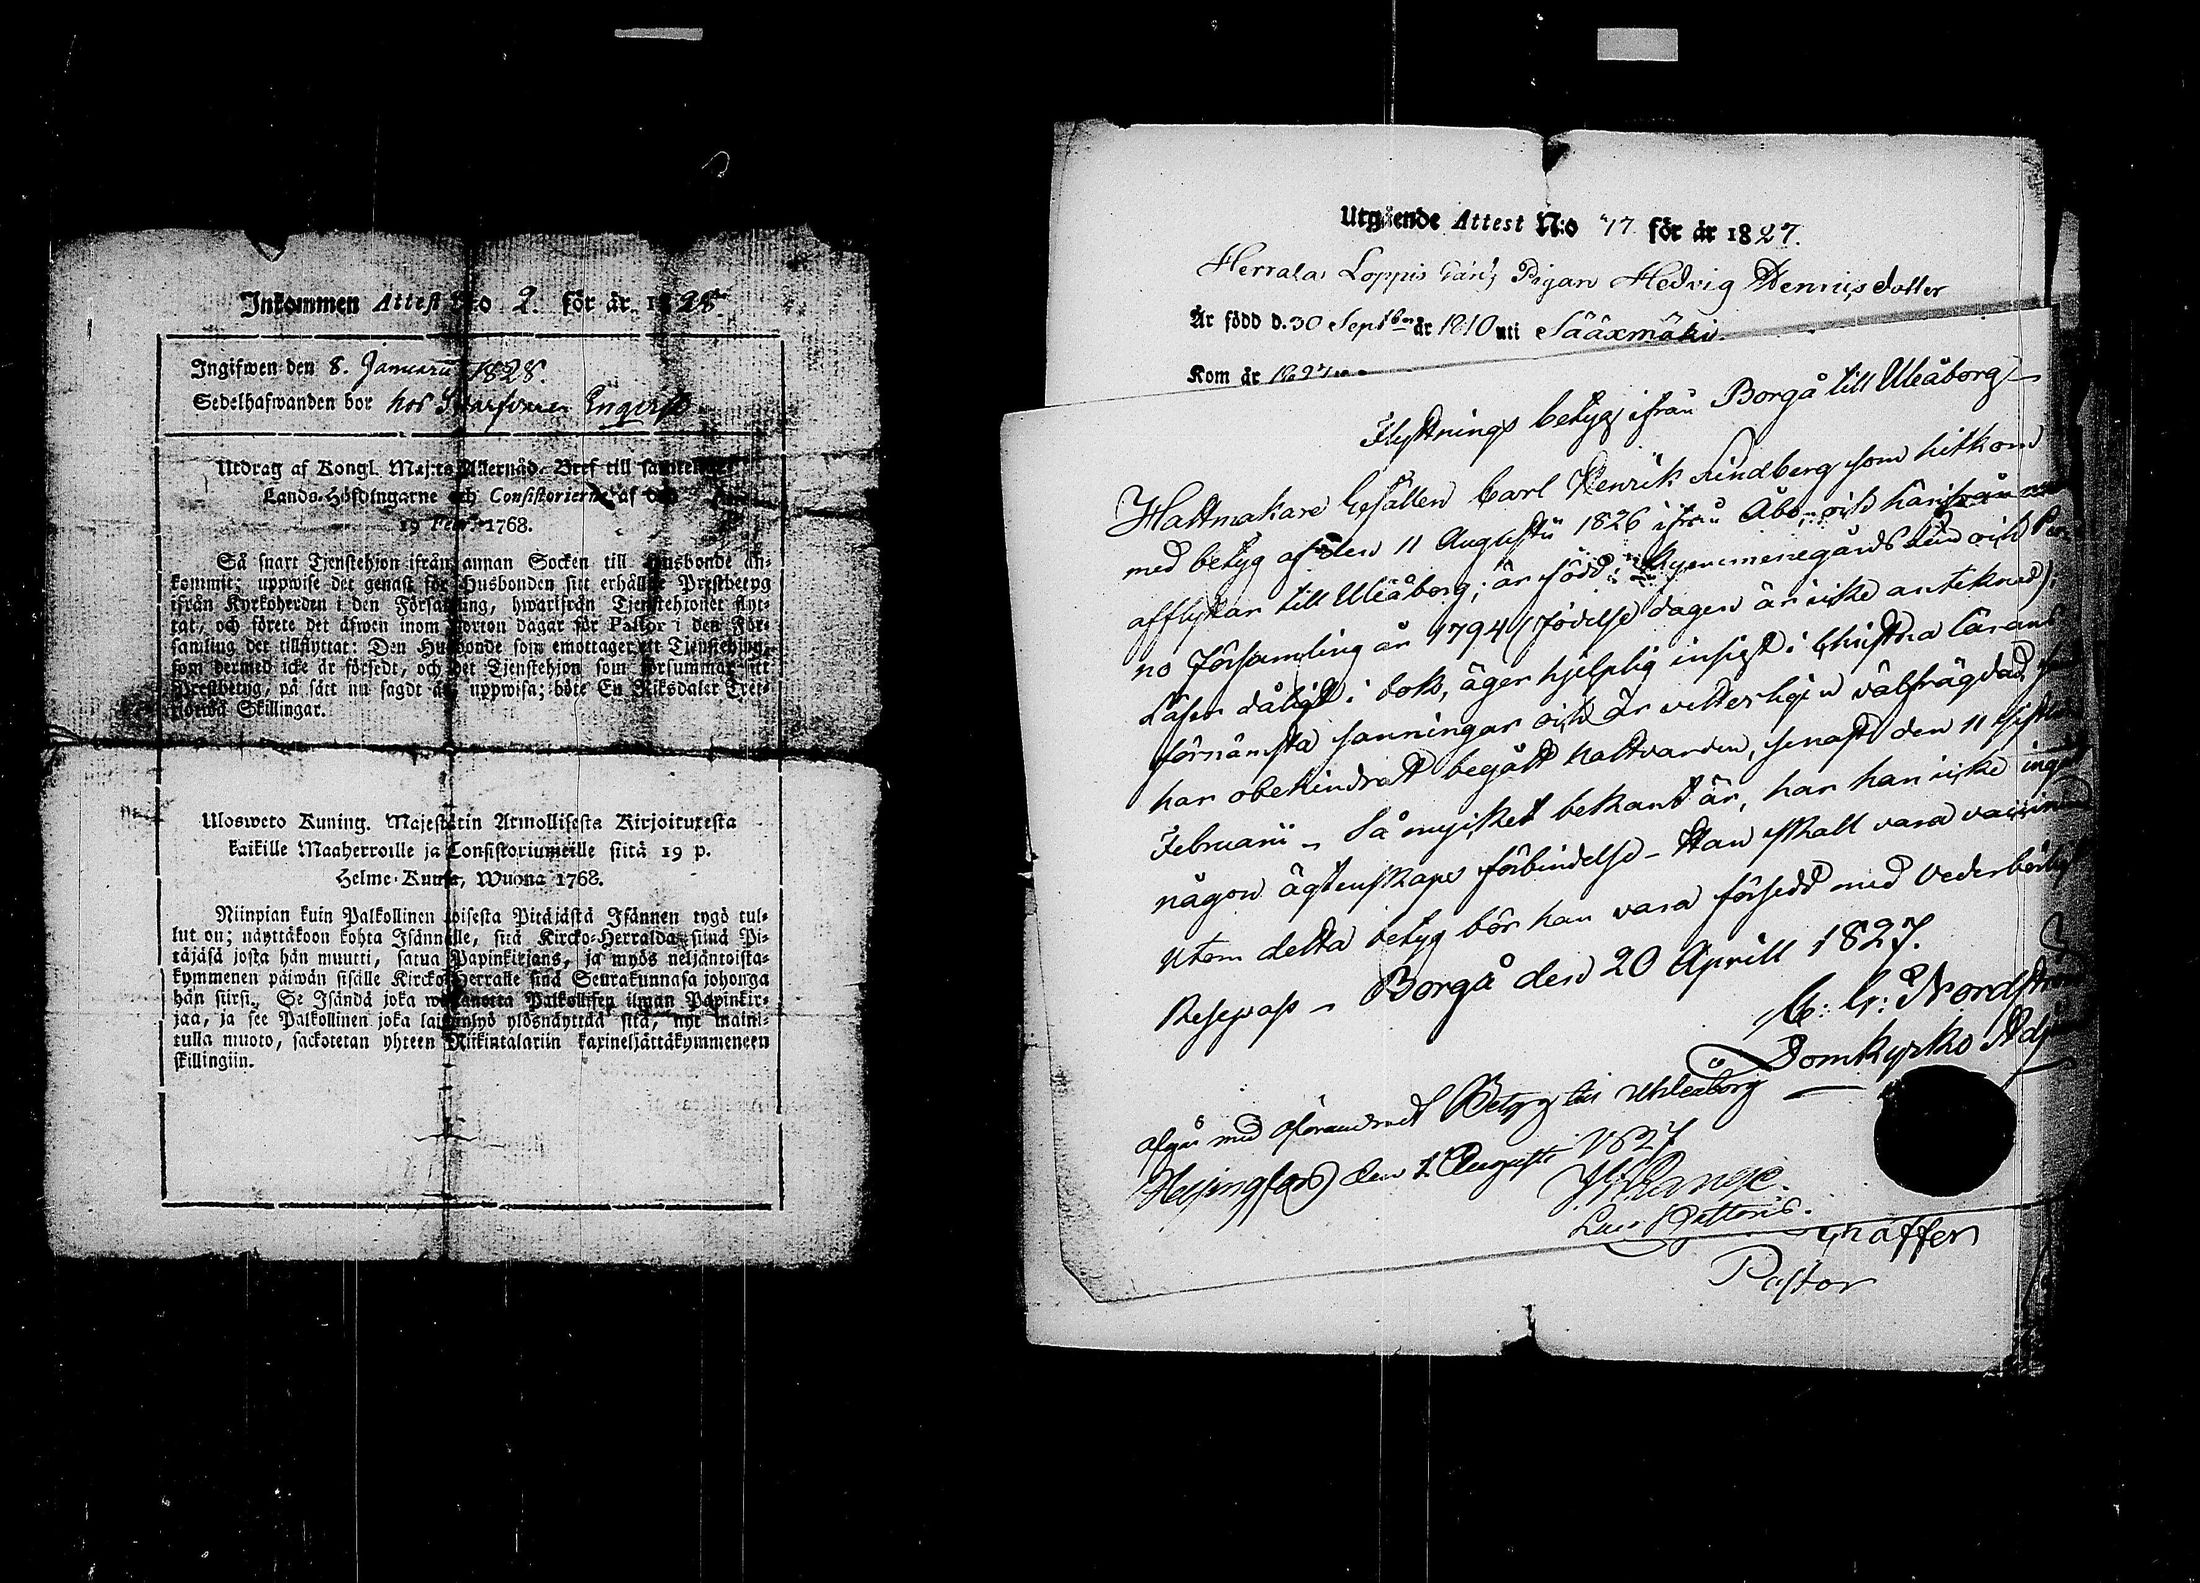 Inkommen Attest No 2. för år 1828.
Ingifwen den 8. Januarii 1828.
Sedelhafwanden bor hos
Utdrag af Kongl. Maj:ts Allernåd. Bref till samteliga
Lands-Höfdingarne och Consistorierne af den
19 Febr. 1768.
Så snart Tjenstehjon ifrån annan Socken till Husbonde an-
kommit; uppwise det genast för Husbonden sitt erhållne Prestbetyg
ifrån Kyrkoherden i den Församling, hwarifrån Tjenstehjonet flyt-
tat, och förete det äfwen inom fjorton dagar för Pastor i den För-
samling det tillflyttat: Den Husbonde som emottager ett Tjenstehjon,
som dermed icke är försedt, och det Tjenstehjon som försummar sitt
Prestbetyg, på sätt nu sagdt är, uppwisa; böte En Riksdaler Tret-
tiotwå Skillingar.
Ulosweto Kuning. Majestetin Armollisesta Kirjoituxesta
kaikille Maaherroille ja Consistoriumeille siitä 19 p.
Helme-Kuusa, Wuona 1768.
Niinpian kuin Palkollinen toisesta Pitäjästä Isännen tygö tul-
lut on; näyttäkoon kohta Isännelle, sitä Kircko-Herralda siinä Pi-
täjäsä josta hän muutti, saatua Papinkirjans, ja myös neljäntoista-
kymmenen päiwän sisälle Kircko-Herralle siinä Seurakunnasa johonga
hän siirsi. Se Isändä joka wastanotta Palkollisen ilman Papinkir-
jaa, ja see Palkollinen joka laiminlyö ylösnäyttää sitä, nyt maini-
tulla muoto, sackotetan yhteen Riikintalariin kaxineljättäkymmeneen
skillingiin.
Utgående Attest N:o 77 för år 1827.
Herrala, Loppis Pigan Hedvig Dennisdotter
Är född d. 30 Septbr år 1810 uti Sääxmäki.
Kom år 1827
Flyttnings betyg ifrån Borgå till Uleåborg
Hattmakare Gesällen Carl Henrik Lindberg som hitkom
med betyg af den 11 Augusti 1826 ifrån Åbo och härifrån nu
afflyttar till Uleåborg; är född i Kymmenegårds Län och
no Församling år 1794 (födelse dagen är icke antecknad);
Läser dåligt i bok, äger hjelplig insigt i Christna lärans
förnämsta sanningar och är vitterligen välfrägdad,
har obehindradt begått nattvarden, senast den 11 sistl.
Februarii – Så mycket bekant är, har han icke ingått
någon ägtenskaps förbindelse – Han skall vara
Utom detta betyg bör han vara försedd med vederbörligt
Resepass – Borgå den 20 Aprill 1827.
C: G: Nordström
Domkyrko Adj
afgår med oförändradt Betyg till Uhleåborg
Helsingfors den 1 Augusti 1827
Pastor